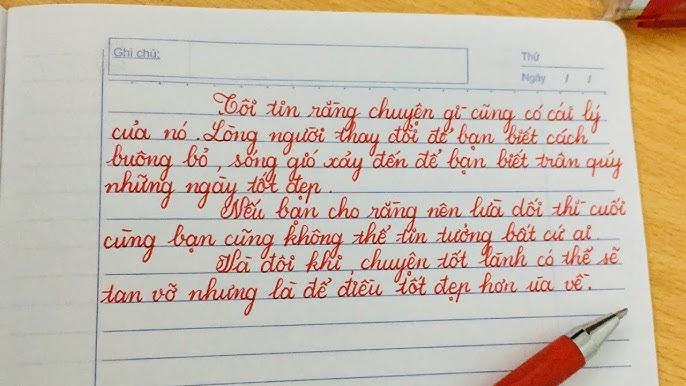 Ghi chú:
Thứ
Ngày / /
Tôi tin rằng chuyện gì cũng có cái lý
của nó. Lòng người thay đổi để bạn biết cách
buông bỏ, sóng gió xảy đến để bạn biết trân quý
những ngày tốt đẹp.
Nếu bạn cho rằng nên lừa dối thì cuối
cùng bạn cũng không thể tin tưởng bất cứ ai
Và đôi khi, chuyện tốt lành có thể sẽ
tan vỡ nhưng là để điều tốt đẹp hơn ùa về.